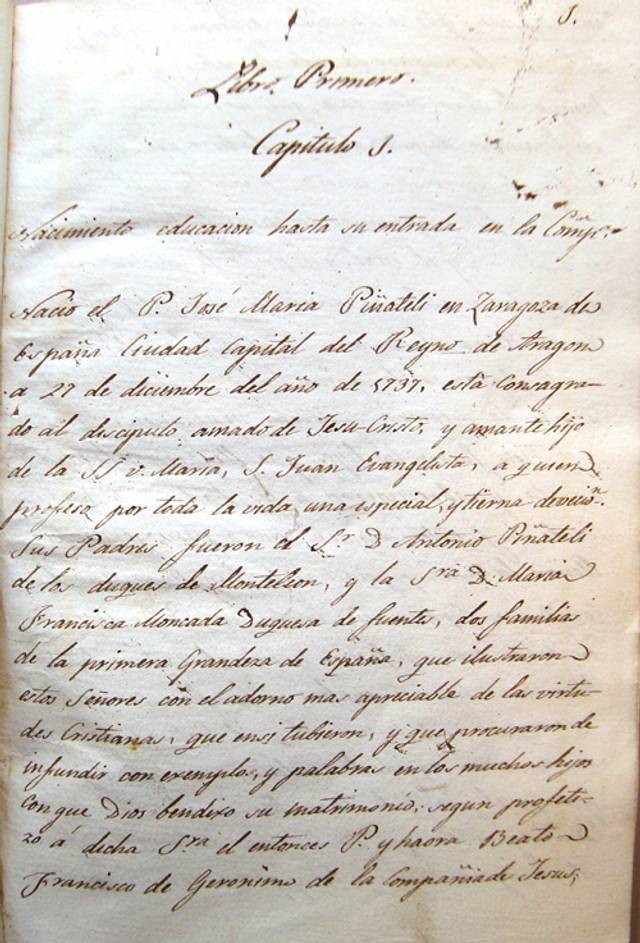 1.
Libro Primero.
Capitulo 1.
Nacimiento educacion hasta su entrada en la Compª.
Nacio el P. José Maria Piñateli en Zaragoza de
España Ciudad Capital del Reyno de Aragon
a 27 de diciembre del año de 1737, está consagra-
do al discipulo amado de Jesu-Cristo, y amante hijo
de la SS v. Maria, S. Juan Evangelista, a quien
profeso por toda la vida una especial, y tierna devocion.
Sus Padres fueron el Sr D Antonio Piñateli
de los duques de Monteleon, y la Sra D Maria
Francisca Moncada Duquesa de fuentes, dos familias
de la primera Grandeza de España, que ilustraron
estos Señores con el adorno mas apreciable de las virtu-
des Cristianas, que en si tubieron, y que procuraron de
infundir con exemplos, y palabras en los muchos hijos
con que Dios bendixo su matrimonio, segun profeti-
zo á dicha Sra el entonces P. y haora Beato
Francisco de Geronimo de la Compañia de Jesus;